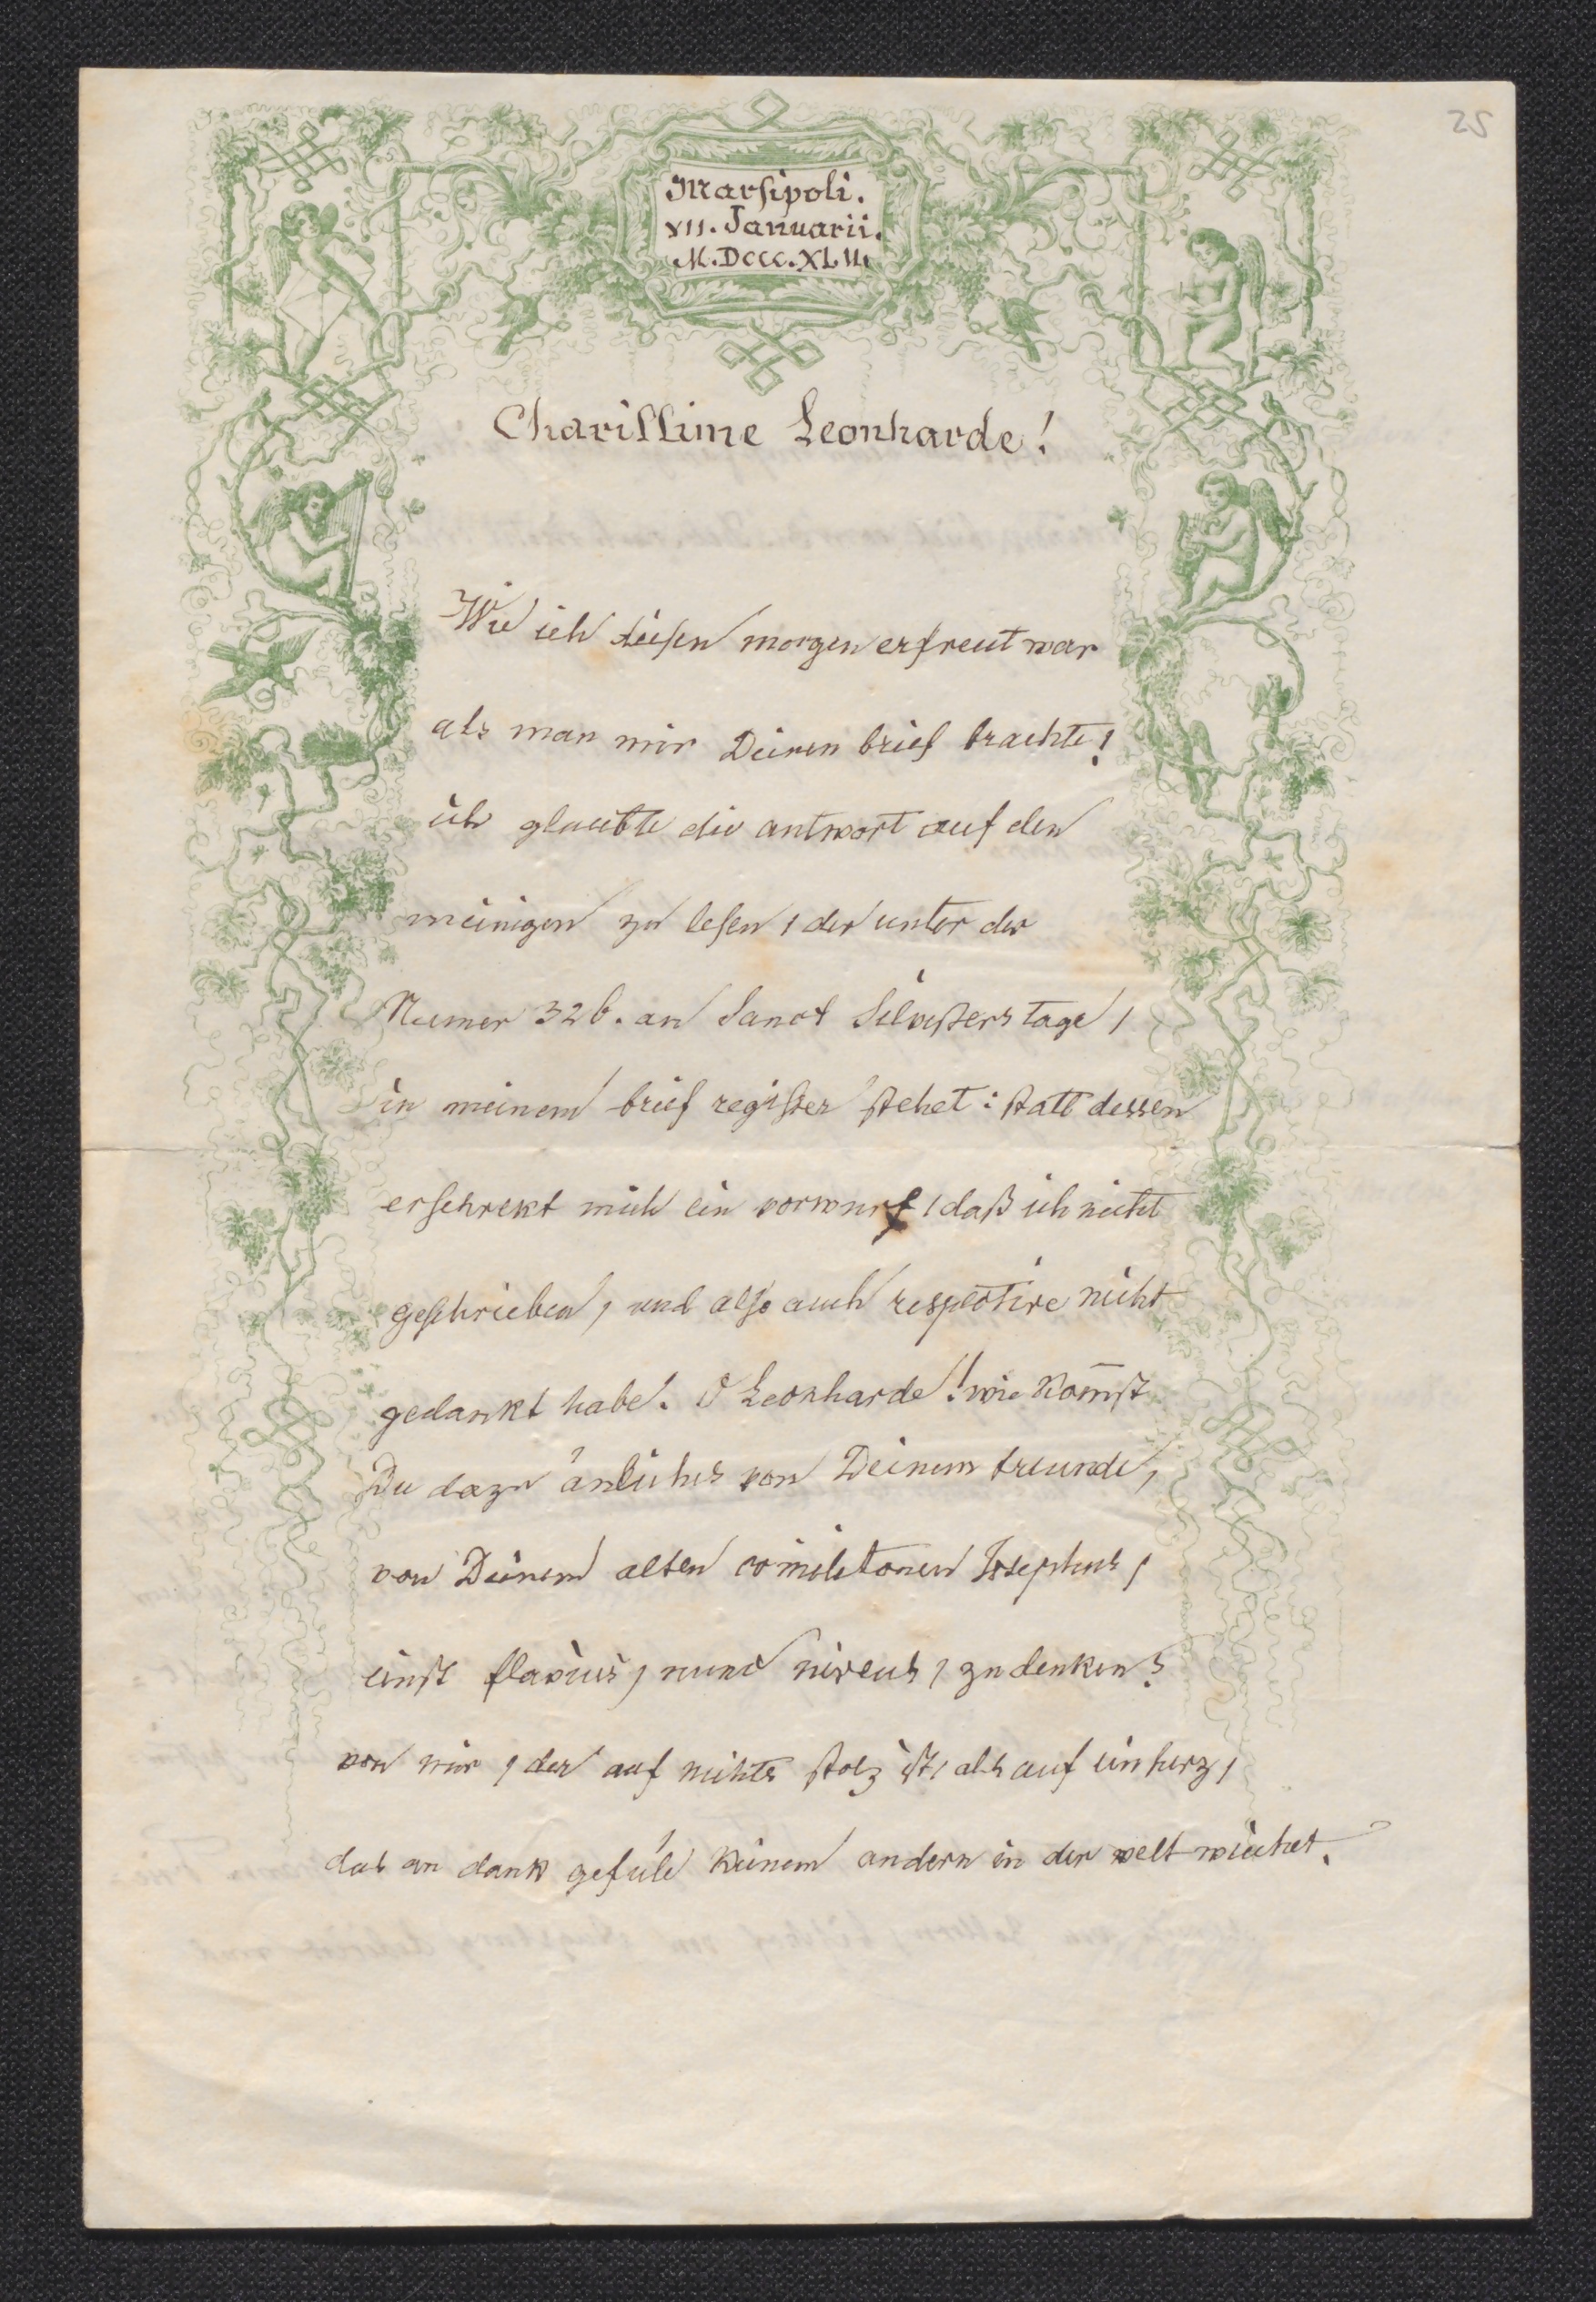 25
Marſipoli.
VII. Januarii.
M.DCCC.XLII.
Chariſſime Leonharde!
Wie ich dieſen morgen erfreut war
als man mir Deinen brief brachte!
ich glaubte die antwort auf den
meinigen zu leſen, der unter der
Numer 326. an Sanct Silveſters tage,
in meinem brief regiſter ſtehet: ſtatt dessen
erſchrekt mich ein vorwurf, daß ich nicht
geſchrieben, und alſo auch respective nicht
gedankt habe. O Leonharde! wie kom̄ſt
Du dazu änliches von Deinem freunde,
von Deinem alten comilitonen Josephus,
einſt flavius, nunc niveus, zu denken?
von mir, der auf nichts ſtolz iſt, als auf ein herz,
das an dank gefüle keinem andern in der welt weichet.